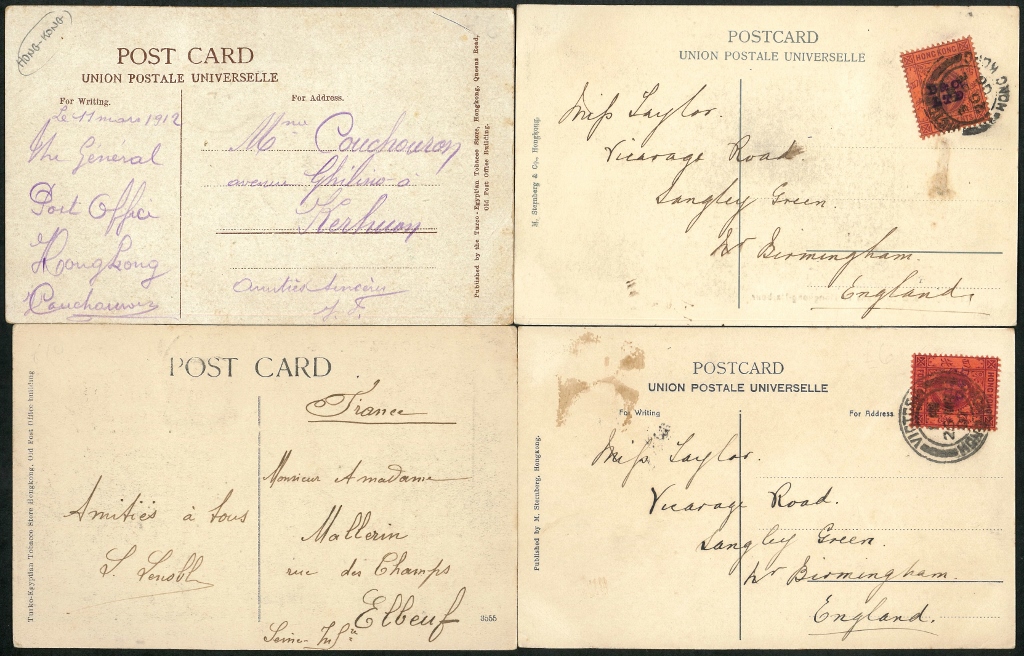 HONG-KONG
POST CARD
UNION POSTALE UNIVERSELLE
For Writing.
For Address.
Le 11 mars 1912
The General
Post Office
Hong Kong
Couchouron
Mme Couchouron
avenue Ghilino à
Kerhuon
Amitiés sincères
Published by the Turco-Egyptian Tobacco Store, Hongkong, Queens Road,
Old Post Office Building.
POSTCARD
UNION POSTALE UNIVERSELLE
HONG KONG
Miss Taylor.
Vicarage Road.
Langley Green.
Nr Birmingham.
England.
M. Sternberg & Co., Hongkong.
POST CARD
France
Monsieur A madame
Mallerin
rue des Champs
Elbeuf
Seine-Infre
Amitiés à tous
Turko-Egyptian Tobacco Store Hongkong, Old Post Office building
3555
POSTCARD
UNION POSTALE UNIVERSELLE
For Writing
For Address
HONG KONG
Miss Taylor.
Vicarage Road.
Langley Green.
Nr Birmingham.
England.
Published by M. Sternberg, Hongkong.